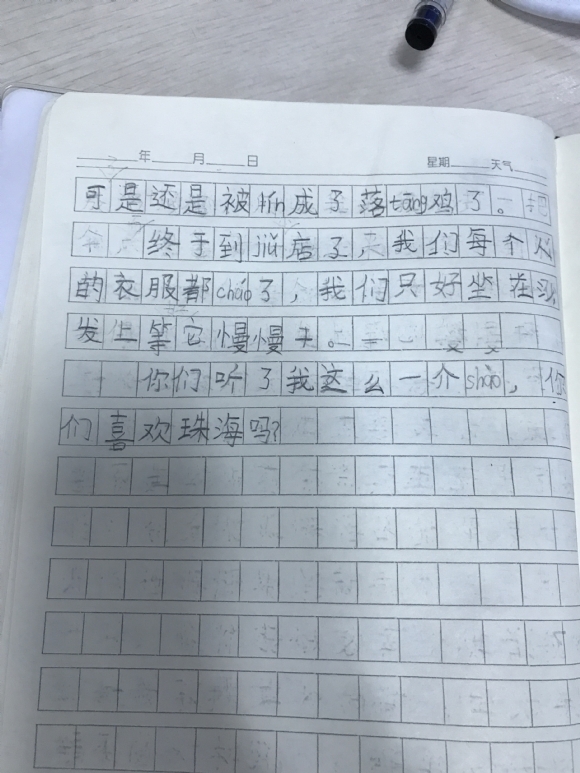 年 月 日 星期 天气
可是还是被lín成了落tāng鸡了。
终于到jiǔ店了，我们每个人
的衣服都cháo了，我们只好坐在沙
发上等它慢慢干。
你们听了我这么一介shào，你
们喜欢珠海吗？